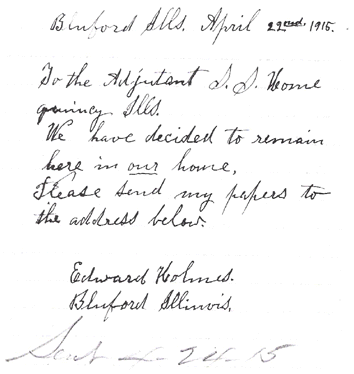 Bluford Ills. April 22nd, 1915.
To the Adjutant S. S. Home
quincy Ills.
We have decided to remain
here in our home,
Please send my papers to
the address below.
Edward Holmes.
Bluford Illinois,
Sent 4-24-15